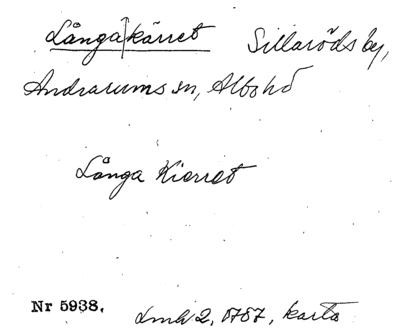 Långa|kärret Sillaröds by,
Andrarums sn, Albo hd
Långa Kierret
Nr 5938. Lmk 2, 1787, karta